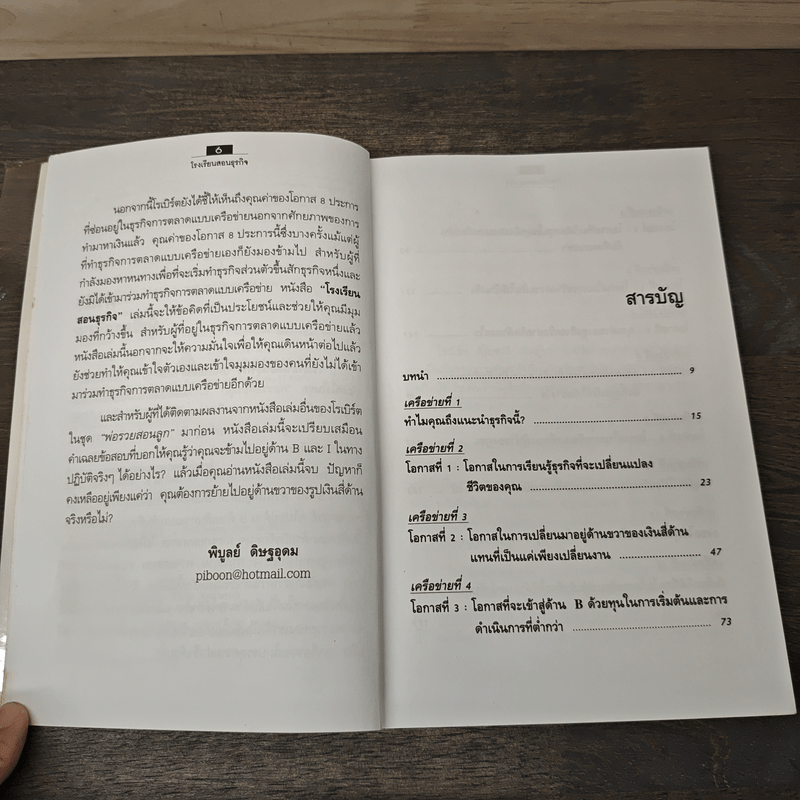 6
โรงเรียนสอนธุรกิจ
นอกจากนี้โรเบิร์ตยังได้ชี้ให้เห็นถึงคุณค่าของโอกาส 8 ประการ
ที่ซ่อนอยู่ในธุรกิจการตลาดแบบเครือข่ายนอกจากศักยภาพของการ
ทำมาหาเงินแล้ว คุณค่าของโอกาส 8 ประการนี้ซึ่งบางครั้งแม้แต่ผู้
ที่ทำธุรกิจการตลาดแบบเครือข่ายเองก็ยังมองข้ามไป สำหรับผู้ที่
กำลังมองหาหนทางเพื่อที่จะเริ่มทำธุรกิจส่วนตัวขึ้นสักธุรกิจหนึ่งและ
ยังมิได้เข้ามาร่วมทำธุรกิจการตลาดแบบเครือข่าย หนังสือ “โรงเรียน
สอนธุรกิจ” เล่มนี้จะให้ข้อคิดที่เป็นประโยชน์และช่วยให้คุณมีมุม
มองที่กว้างขึ้น สำหรับผู้ที่อยู่ในธุรกิจการตลาดแบบเครือข่ายแล้ว
หนังสือเล่มนี้นอกจากจะให้ความมั่นใจเพื่อให้คุณเดินหน้าต่อไปแล้ว
ยังช่วยทำให้คุณเข้าใจตัวเองและเข้าใจมุมมองของคนที่ยังไม่ได้เข้า
มาร่วมทำธุรกิจการตลาดแบบเครือข่ายอีกด้วย
และสำหรับผู้ที่ได้ติดตามผลงานจากหนังสือเล่มอื่นของโรเบิร์ต
ในชุด “พ่อรวยสอนลูก” มาก่อน หนังสือเล่มนี้จะเปรียบเสมือน
คำเฉลยข้อสอบที่บอกให้คุณรู้ว่าคุณจะข้ามไปอยู่ด้าน B และ I ในทาง
ปฏิบัติจริงๆ ได้อย่างไร? แล้วเมื่อคุณอ่านหนังสือเล่มนี้จบ ปัญหาก็
คงเหลืออยู่เพียงแค่ว่า คุณต้องการย้ายไปอยู่ด้านขวาของรูปเงินสี่ด้าน
จริงหรือไม่?
พิบูลย์ ดิษฐอุดม
piboon@hotmail.com
สารบัญ
บทนำ ........ 9
เครือข่ายที่ 1
ทำไมคุณถึงแนะนำธุรกิจนี้? ........ 15
เครือข่ายที่ 2
โอกาสที่ 1 : โอกาสในการเรียนรู้ธุรกิจที่จะเปลี่ยนแปลง
ชีวิตของคุณ ........ 23
เครือข่ายที่ 3
โอกาสที่ 2 : โอกาสในการเปลี่ยนมาอยู่ด้านขวาของเงินสี่ด้าน
แทนที่เป็นแค่เพียงเปลี่ยนงาน ........ 47
เครือข่ายที่ 4
โอกาสที่ 3 : โอกาสที่จะเข้าสู่ด้าน B ด้วยทุนในการเริ่มต้นและการ
ดำเนินการที่ต่ำกว่า ........ 73